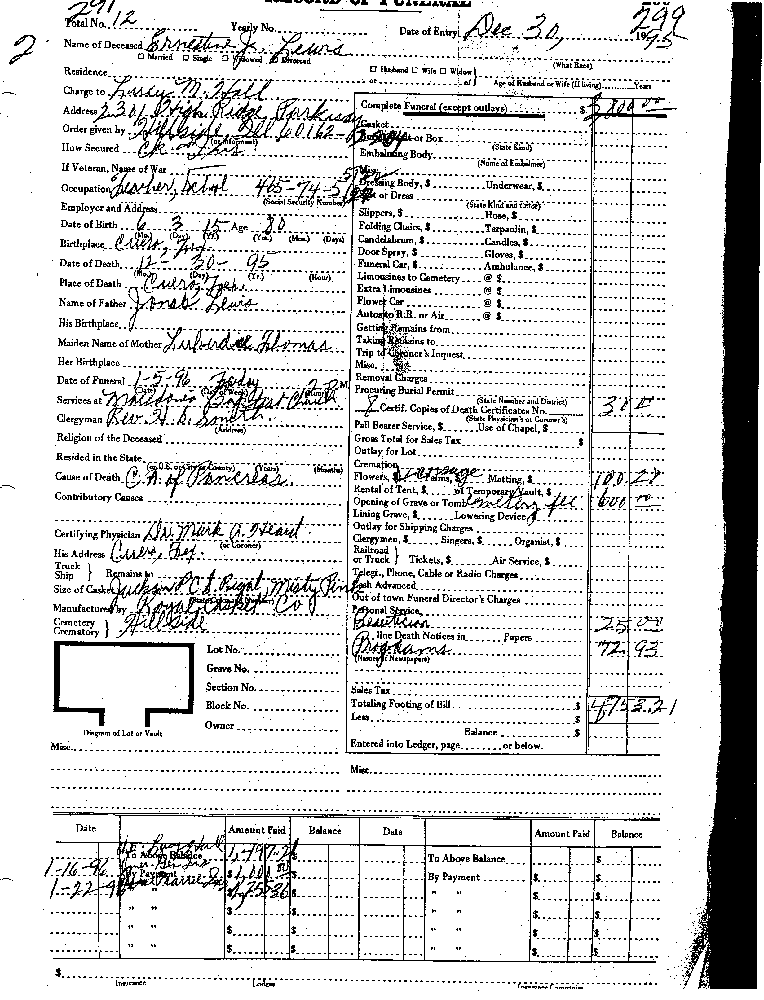 RECORD OF FUNERAL
291
299
Total No. 12 Yearly No. Date of Entry Dec 30, 1995
2
Name of Deceased Ernestine Jr. Lewis
□ Married □ Single □ Widowed □ Divorced
□ Husband □ Wife □ Widow (What Race)
or of Age of Husband or Wife (if living) Years
Residence
Charge to M. Hall
Address 2301 High Ridge
Order given by Hillside, Ill 60162
(or Informant)
How Secured
If Veteran, Name of War
Occupation Teacher, School 465-74-
(Social Security Number)
Employer and Address
Date of Birth 6 3 15 Age 80
(Mo.) (Day) (Yr.) (Yrs.) (Mos.) (Days)
Birthplace Cuero, Tex
Date of Death 12 - 30 - 95
(Mo.) (Day) (Yr.) (Hour)
Place of Death Cuero, Tex.
Name of Father Jonah Lewis
His Birthplace
Maiden Name of Mother Thomas
Her Birthplace
Date of Funeral 1-5-96 Friday 2 PM
(Date) (Day of Week) (Hour)
Services at Macedonia Baptist Church
Clergyman Rev. H. D. Smith
(Address)
Religion of the Deceased
Resided in the State
(or U.S. or City or County) (Years) (Months)
Cause of Death CA of Pancreas
Contributory Causes
Certifying Physician Dr. Mark A. Heard
(or Coroner)
His Address Cuero, Tex.
Truck
Ship } Remains to
Size of Casket Royal Misty Pink
Manufactured by Royal Casket Co
Cemetery
Crematory } Hillside
Lot No.
Grave No.
Section No.
Block No.
Owner
Diagram of Lot or Vault
Misc.
Complete Funeral (except outlays) $
Casket
Burial Vault or Box
(State Kind)
Embalming Body
(Name of Embalmer)
Misc.
Dressing Body, $ Underwear, $
Suit or Dress
(State Kind and Color)
Slippers, $ Hose, $
Folding Chairs, $ Tarpaulin, $
Candelabrum, $ Candles, $
Door Spray, $ Gloves, $
Funeral Car, $ Ambulance, $
Limousines to Cemetery @ $
Extra Limousines @ $
Flower Car @ $
Autos to R.R. or Air @ $
Getting Remains from
Taking Remains to
Trip to Coroner's Inquest
Misc.
Removal Charges
Procuring Burial Permit
(State Number and District)
8 Certif. Copies of Death Certificates No.
(State Physician's or Coroner's)
Pall Bearer Service, $ Use of Chapel, $
Gross Total for Sales Tax $
Outlay for Lot
Cremation
Flowers, $ Palms, $ Matting, $ 100.28
Rental of Tent, $ of Temporary Vault, $
Opening of Grave or Tomb Cemetery fee 600 00
Lining Grave, $ Lowering Device, $
Outlay for Shipping Charges
Clergymen, $ Singers, $ Organist, $
Railroad
or Truck } Tickets, $ Air Service, $
Telegr., Phone, Cable or Radio Charges
Cash Advanced
Out of town Funeral Director's Charges
Personal Service
Beautician 25.00
Line Death Notices in Papers
Programs 72.93
(Names of Newspapers)
Sales Tax
Totaling Footing of Bill $ 4753.21
Less $
Balance $
Entered into Ledger, page or below.
Misc.
Date Amount Paid Balance Date Amount Paid Balance
To Above Balance $ To Above Balance $
1-16-96 By Payment $ By Payment $
1-22-96 $ " " $
" " $ " " $
" " $ " " $
" " $ " " $
$
Insurance Lodges Insurance Companies